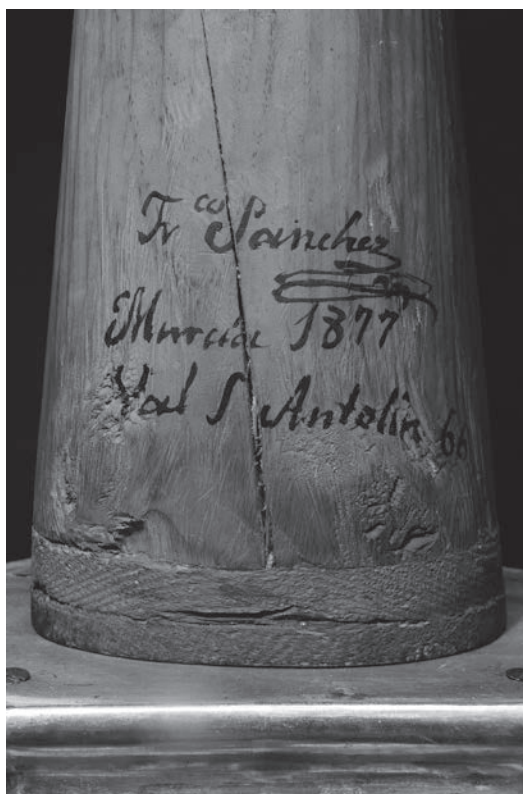 Frco Sanchez
Murcia 1877
Val S Antolin 66